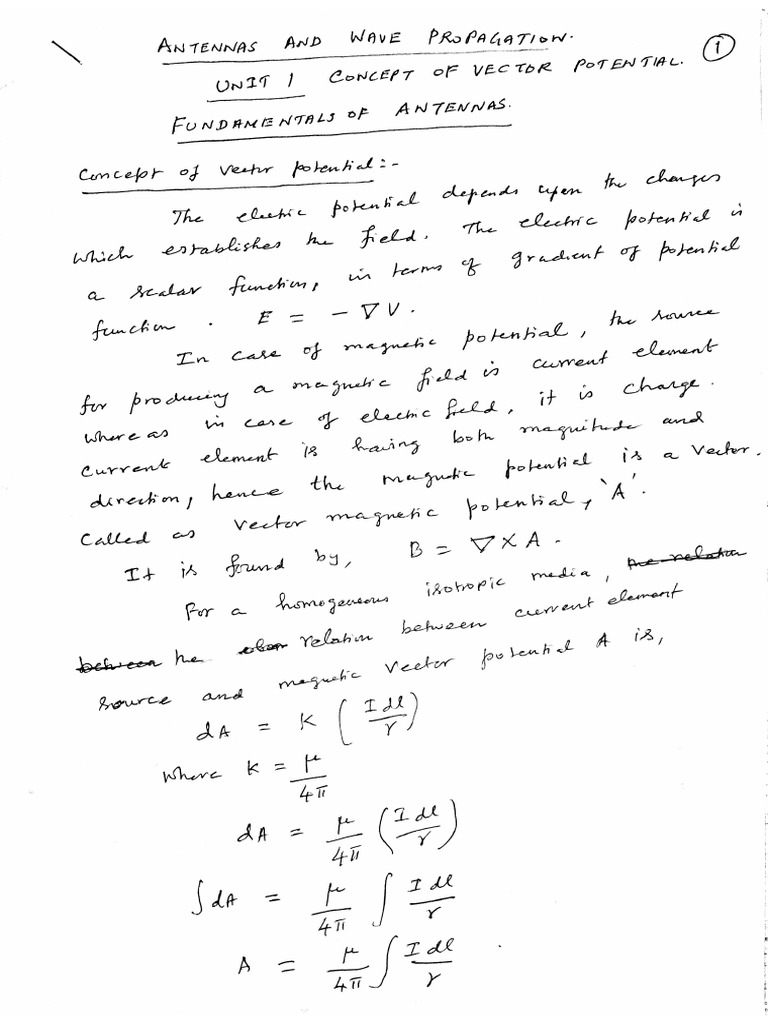 ANTENNAS AND WAVE PROPAGATION.
1
UNIT 1 CONCEPT OF VECTOR POTENTIAL.
FUNDAMENTALS OF ANTENNAS.
Concept of vector potential:-
The electric potential depends upon the charges
which establishes the field. The electric potential is
a scalar function, in terms of gradient of potential
function. E = - ∇ V.
In case of magnetic potential, the source
for producing a magnetic field is current element
where as in case of electric field, it is charge.
current element is having both magnitude and
direction, hence the magnetic potential is a vector.
Called as vector magnetic potential, 'A'.
It is found by, B = ∇ X A.
For a homogeneous isotropic media, the relation
between the relation between current element
source and magnetic vector potential A is,
dA = K ( I dl / r )
where K = μ / 4π
dA = μ / 4π ( I dl / r )
∫ dA = μ / 4π ∫ I dl / r
A = μ / 4π ∫ I dl / r